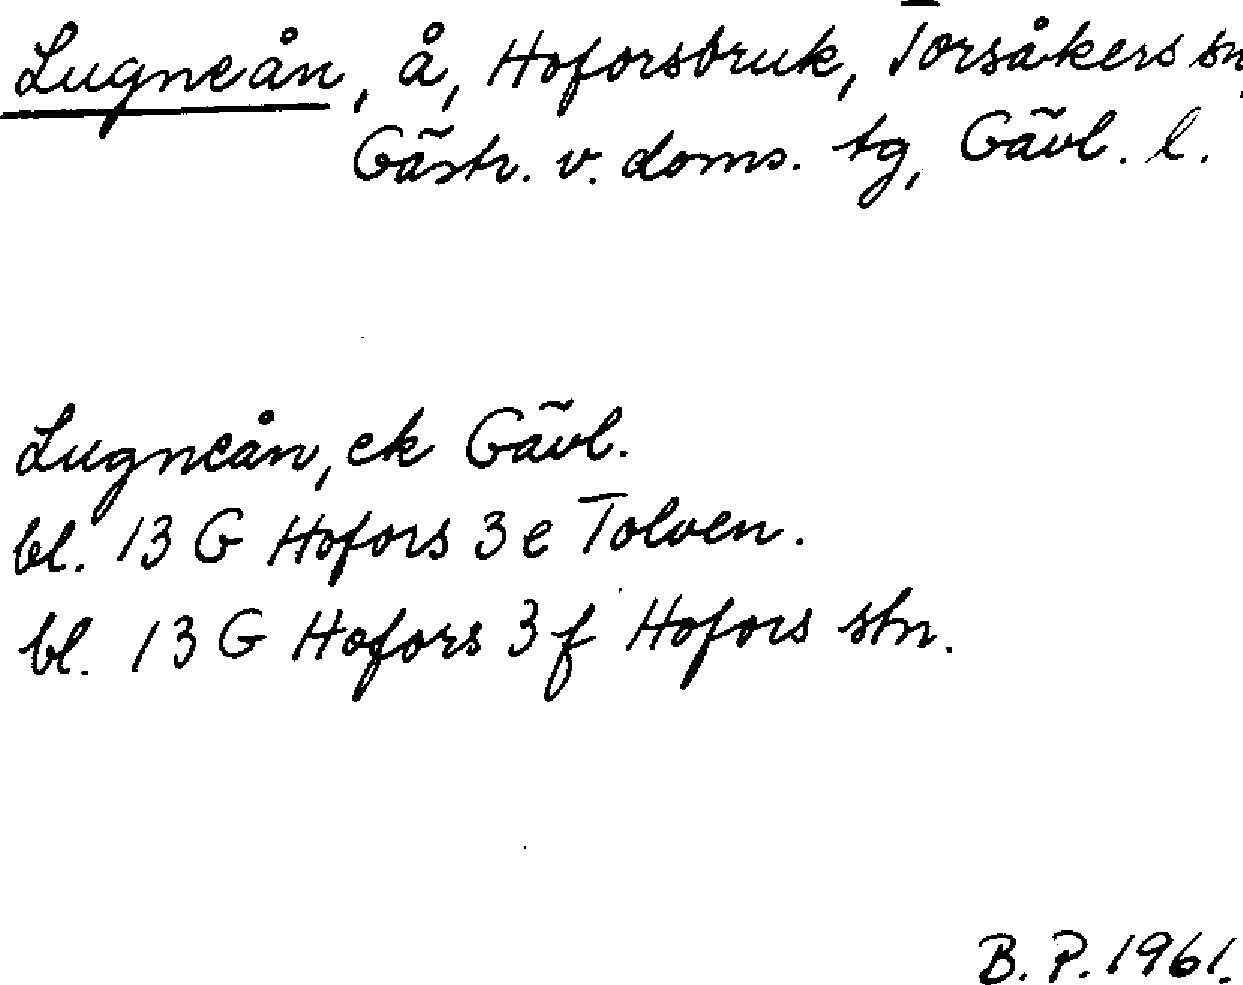 Lugneån, å, Hoforsbruk, Torsåkers sn,
Gästr. v. doms. tg, Gävl. l.
Lugneån, ek Gävl.
bl. 13 G Hofors 3 e Tolven.
bl. 13 G Hofors 3 f Hofors stn.
B. P. 1961.